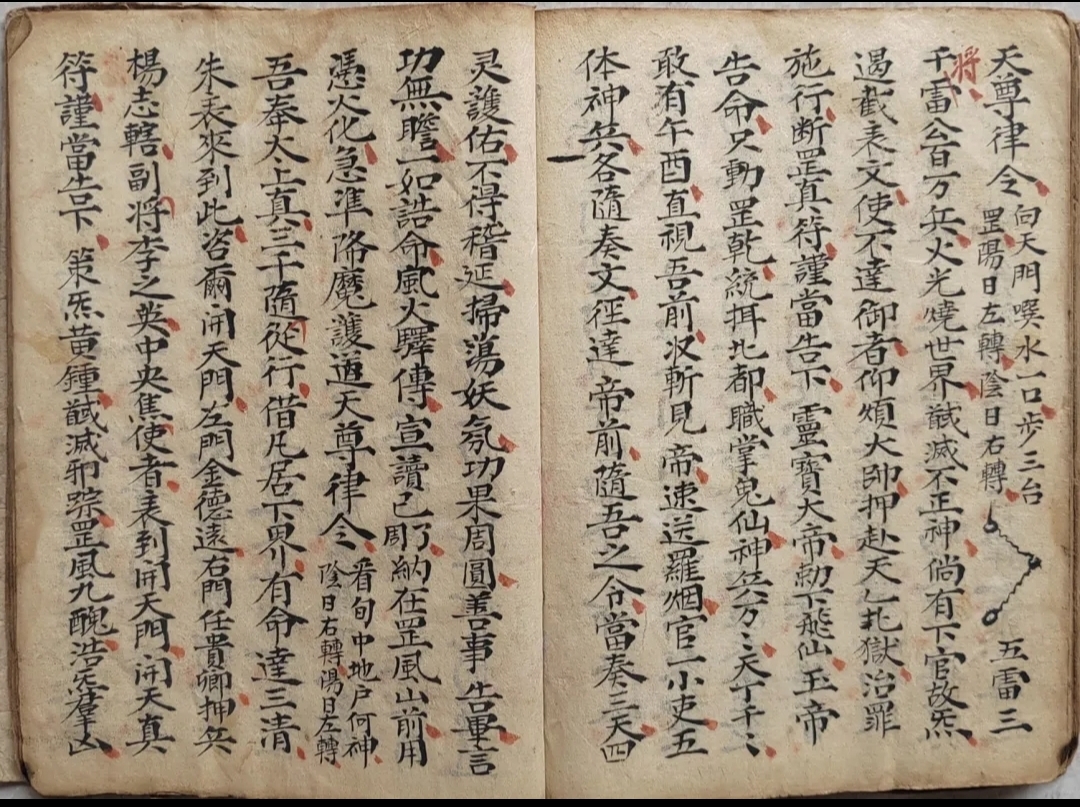 天尊律令 向天門噀水一口步三台 罡陽日左轉陰日右轉 五雷三
千雷公百万兵火光燒世界馘滅不正神倘有下官故炁
將
遏截表文使不達御者仰煩大帥押赴天乙北獄治罪
施行断罡真符謹當告下靈寶大帝勅下飛仙玉帝
告命只動罡乾統揖北都職掌鬼仙神兵万〻天丁千〻
敢有午酉直視吾前收斬見帝速送羅烟官一小吏五
体神兵各隨奏文徑達帝前隨吾之令當奏三天四
灵護佑不得稽延掃蕩妖氛功果周圓善事告畢言
功無瞻一如誥命風火驛傳宣讀已納在罡風山前用
憑火化急準降魔護道天尊律令 看旬中地户何神 陰日右轉陽日左轉
吾奉太上真三千隨從行借凡居下界有命達三清
朱表來到此咨爾開天門左門金德遠右門任貴卿押兵
楊志轄副將李之英中央焦使者表到開天門開天真
符謹當告下策炁黃鍾馘滅邪踪罡風九醜浩炁羣凶